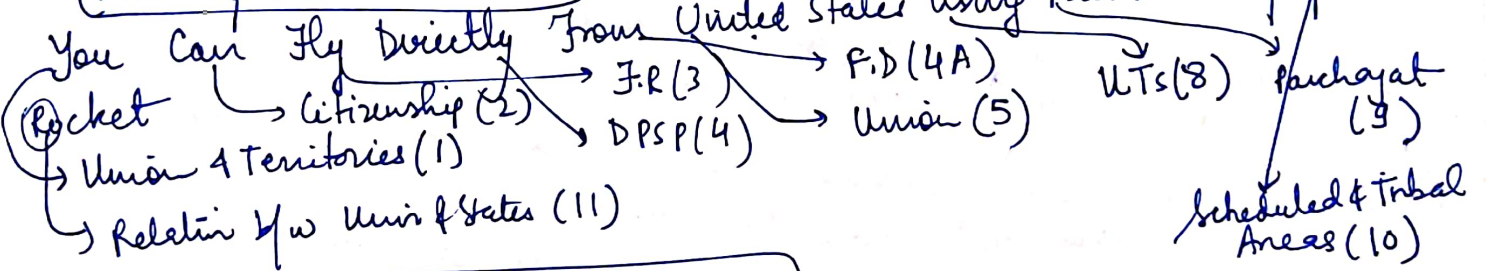 You Can Fly Directly From United States using
Rocket → Citizenship (2) → F.R (3) → F.D (4A) UTs (8) Panchayat (9)
→ DPSP (4) → Union (5)
→ Union & Territories (1)
→ Relation b/w Union & States (11)
Scheduled & Tribal Areas (10)